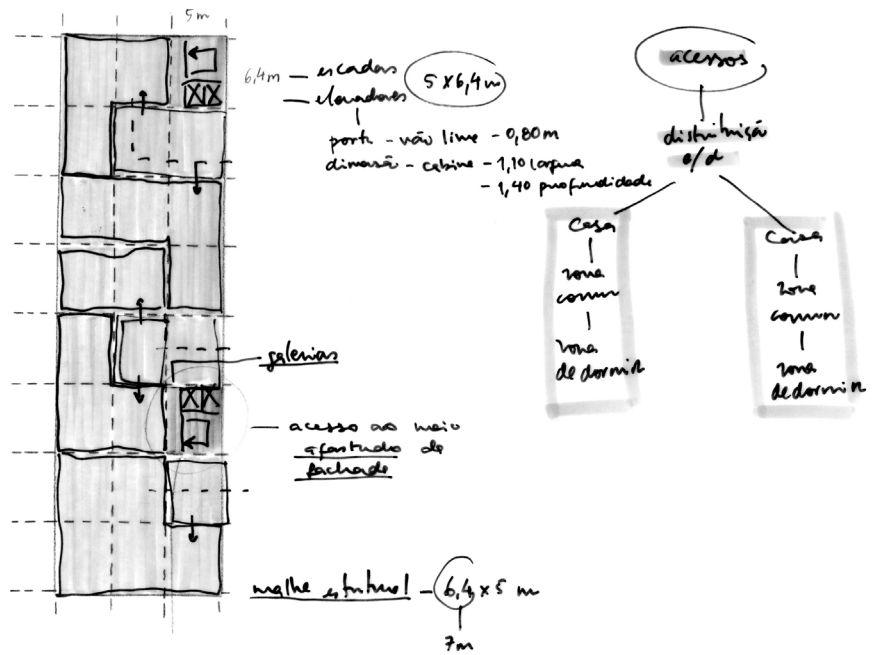 5 m
6,4 m — escadas
5 x 6,4 m
— elevadores
porta - vão livre - 0,80 m
dimensão - cabine - 1,10 largura
- 1,40 profundidade
galerias
acesso ao meio
afastado de
fachada
malha estrutural - 6,4 x 5 m
7m
acessos
distribuição
e/d
casa
zona
comum
zona
de dormir
casa
zona
comum
zona
de dormir